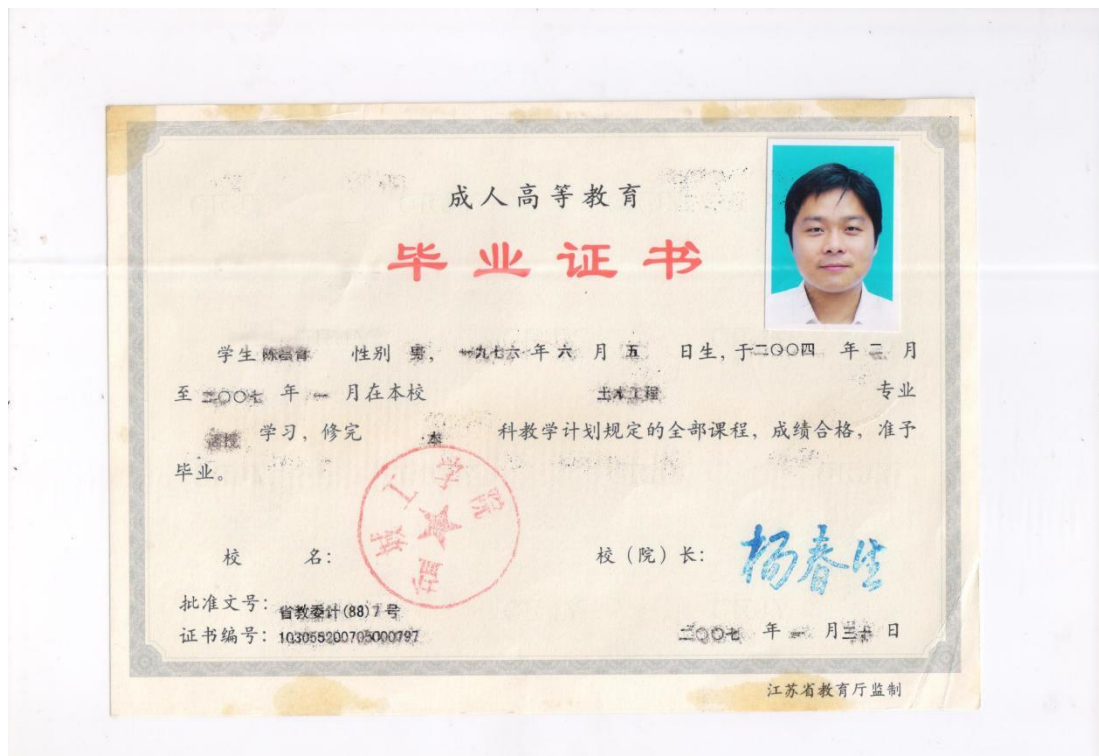 成人高等教育
毕业证书
学生 性别 男, 一九七六 年 六 月 五 日生, 于二〇〇四 年 二 月
至 二〇〇七 年 一 月在本校 土木工程 专业
函授 学习, 修完 本 科教学计划规定的全部课程, 成绩合格, 准予
毕业。
盐城工学院
校 名: 校 (院) 长: 杨春生
批准文号: 省教委计(88)7 号
证书编号: 103055200705000797
二〇〇七 年 一 月三十 日
江苏省教育厅监制